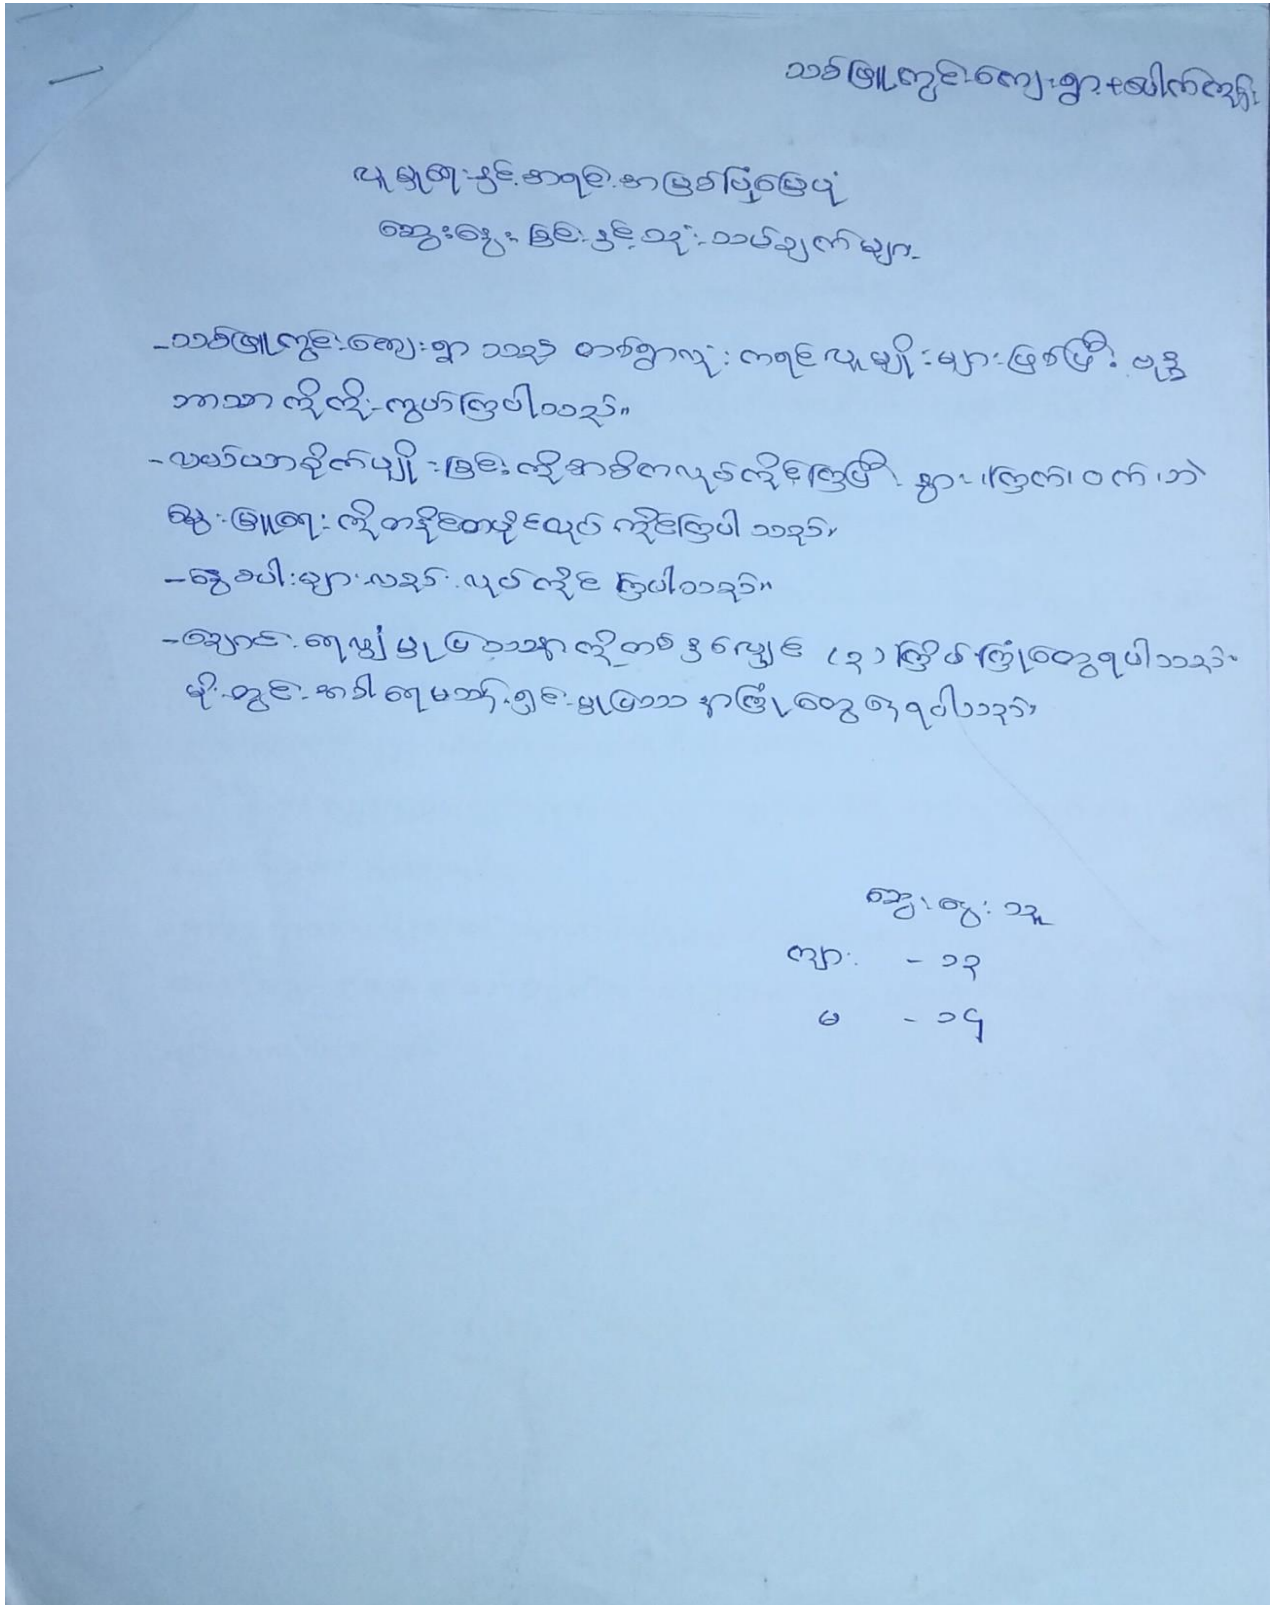 သစ်ဖြူကွင်းကျေးရွာ+ပေါက်ကုန်း
လူမှုရေးနှင့်အရင်းအမြစ်ပြမြေပုံ
ဆွေးနွေးခြင်းနှင့်သုံးသပ်ချက်များ
-သစ်ဖြူကွင်းကျေးရွာသည် တစ်ရွာလုံးကရင်လူမျိုးများဖြစ်ပြီး ဗုဒ္ဓ
ဘာသာကိုကိုးကွယ်ကြပါသည်။
-လယ်ယာစိုက်ပျိုးခြင်းကိုအဓိကလုပ်ကိုင်ကြပြီး နွား၊ကြက်၊ဝက်၊ဘဲ
မွေးမြူရေးကိုတနိုင်တပိုင်လုပ်ကိုင်ကြပါသည်။
-နွေစပါးများလည်းလုပ်ကိုင်ကြပါသည်။
-ချောင်းရေလျှံမှုပြဿနာကိုတစ်နှစ်လျှင် (၃)ကြိမ်ကြုံတွေ့ရပါသည်။
မိုးတွင်းအခါရေမသန့်ရှင်းမှုပြဿနာကြုံတွေ့နေရပါသည်။
ဆွေးနွေးသူ
ကျား - ၁၃
မ - ၁၄